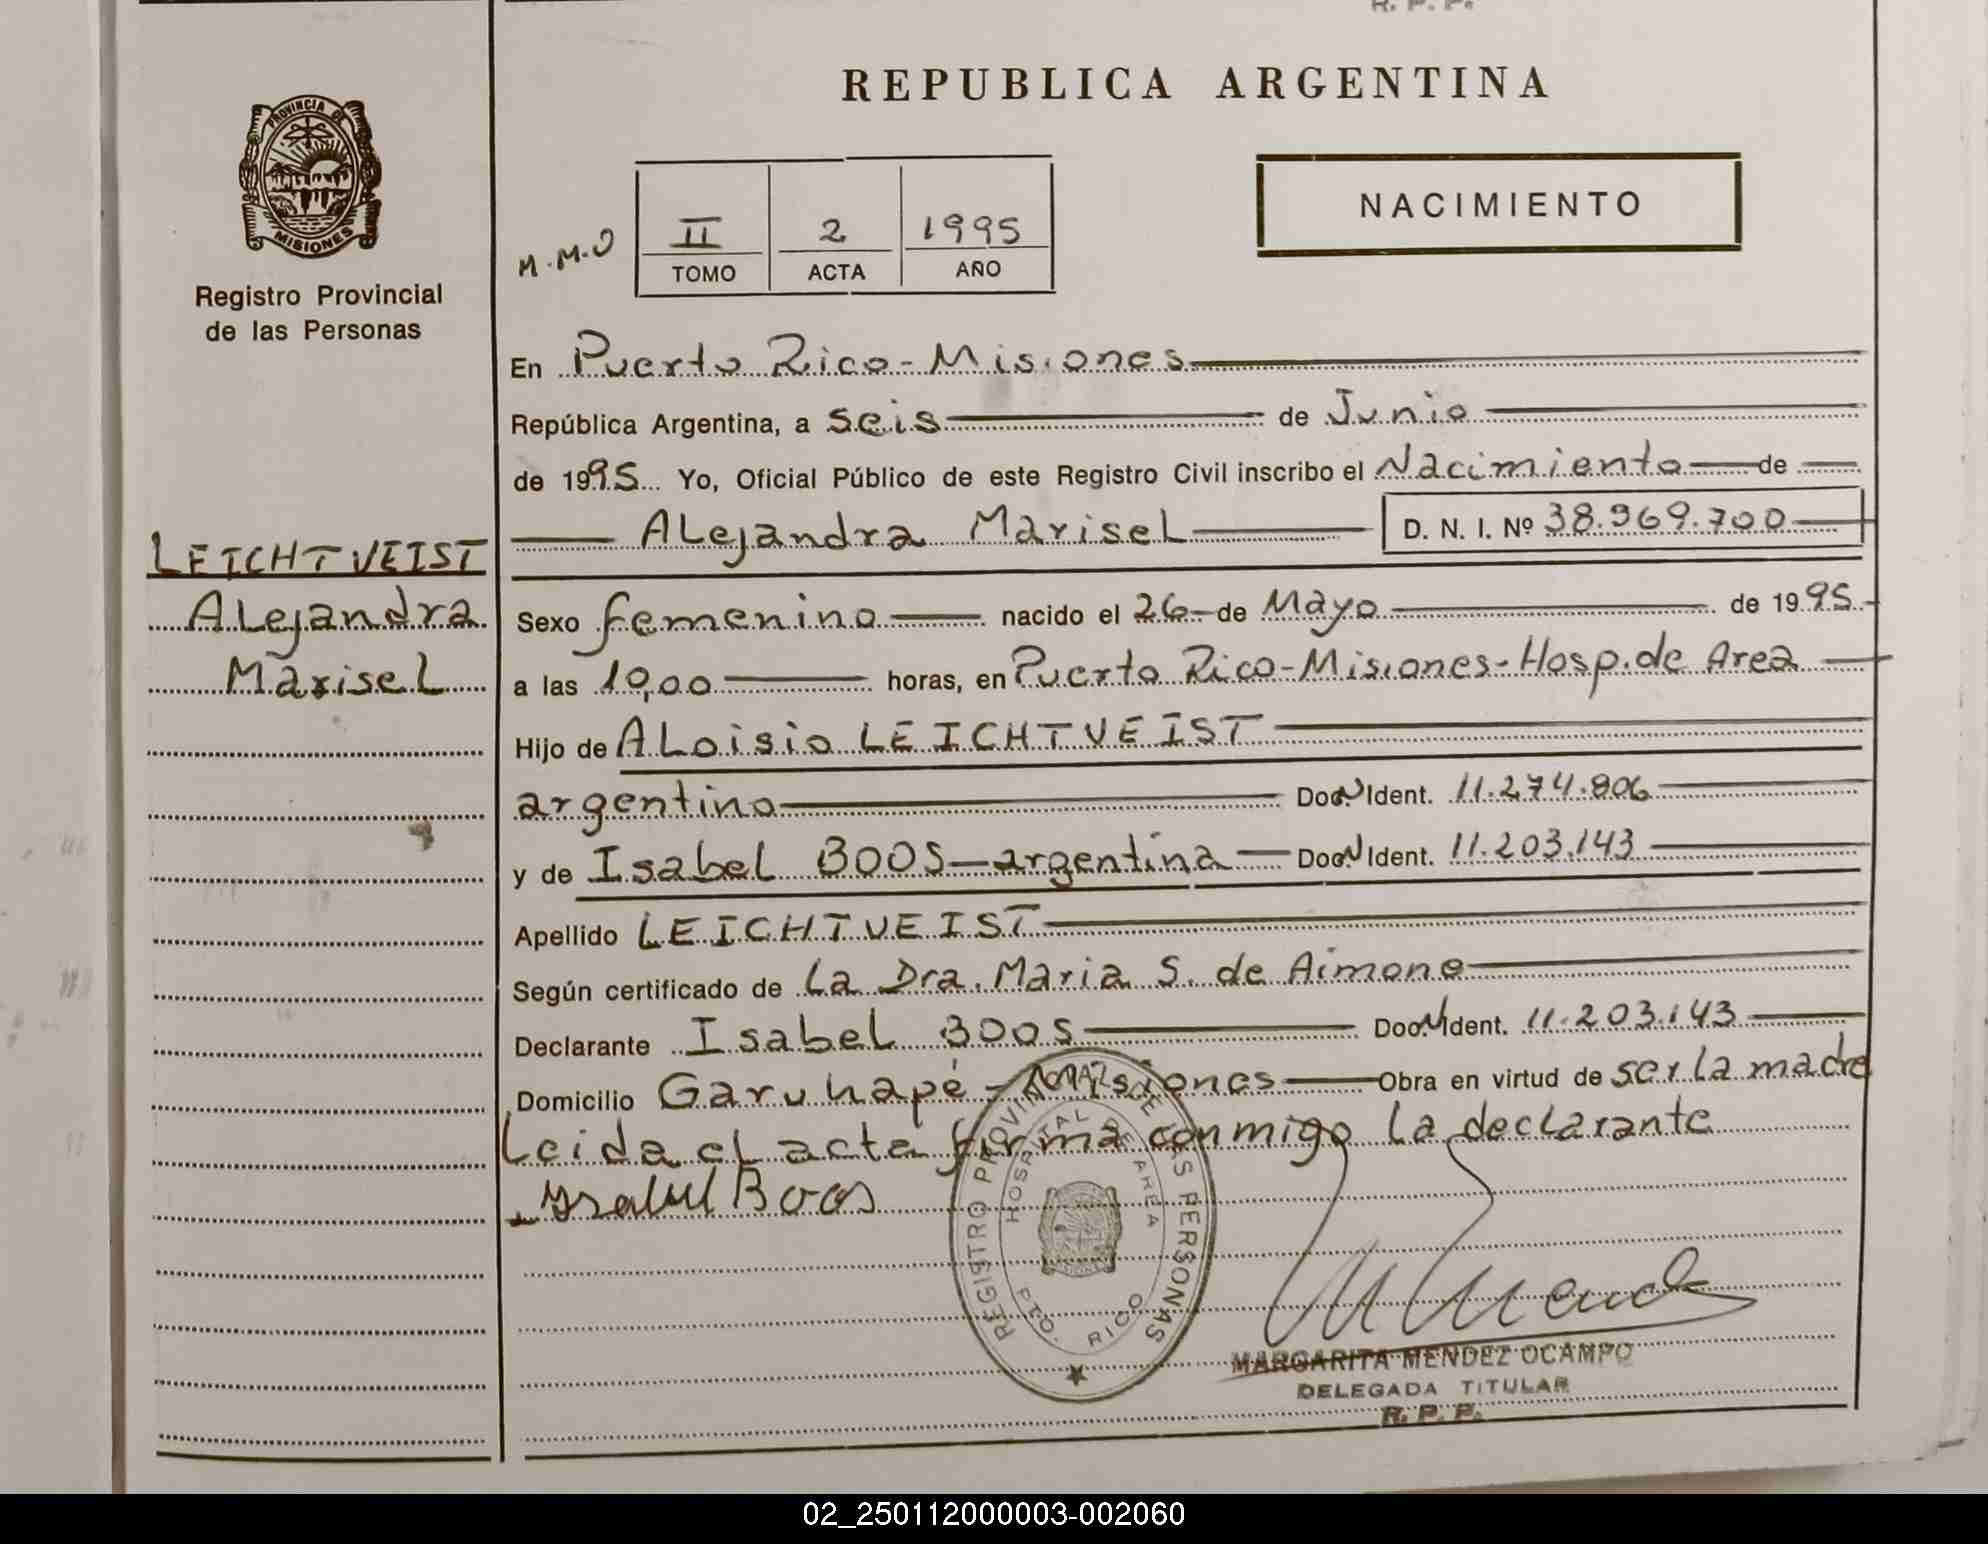 R. P. P.
REPUBLICA ARGENTINA
PROVINCIA DE
MISIONES
Registro Provincial
de las Personas
NACIMIENTO
M.M.O
II 2 1995
TOMO ACTA AÑO
En Puerto Rico - Misiones
República Argentina, a seis de Junio
de 1995 Yo, Oficial Público de este Registro Civil inscribo el Nacimiento de
Alejandra Marisel D. N. I. Nº 38.969.700
LEICHTVEIST
Alejandra
Marisel
Sexo femenino nacido el 26 de Mayo de 1995
a las 10,00 horas, en Puerto Rico-Misiones-Hosp. de Area
Hijo de Aloisio LEICHTVEIST
argentino Doc. N Ident. 11.274.806
y de Isabel BOOS - argentina Doc. N Ident. 11.203.143
Apellido LEICHTVEIST
Según certificado de La Dra. Maria S. de Aimone
Declarante Isabel BOOS Doc. N Ident. 11.203.143
Domicilio Garuhapé - Misiones Obra en virtud de ser la madre
Leida el acta firma conmigo la declarante
Ysabel Boos
REGISTRO PROVINCIAL DE LAS PERSONAS
HOSPITAL DE AREA
PTO. RICO
MISIONES
M Mendez
MARGARITA MENDEZ OCAMPO
DELEGADA TITULAR
R. P. P.
02_250112000003-002060